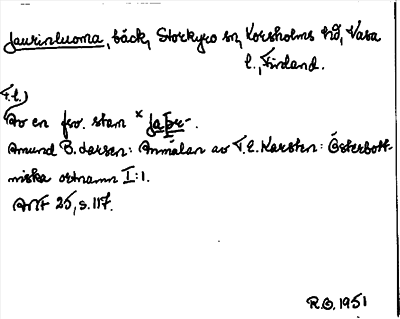 Jaurinluoma, bäck, Storkyro sn, Korsholms hd, Vasa
l., Finland.
F.l.)
Av en fsv. stam * japr-.
Amund B. Larsen: Anmälan av T.E. Karsten: Österbott-
niska ortnamn I:1.
ANF 25, s. 117.
R.O. 1951